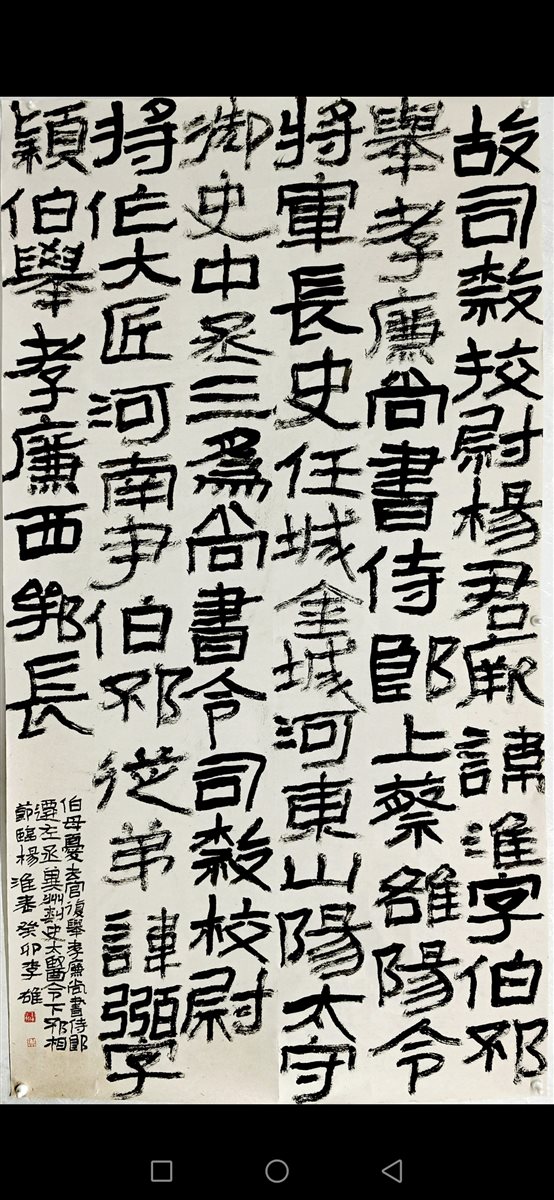 故司隸挍尉楊君厥諱淮字伯邳
舉孝廉尚書侍郎上蔡雒陽令
將軍長史任城金城河東山陽太守
御史中丞三爲尚書令司隸校尉
將作大匠河南尹伯邳從弟諱弼字
穎伯舉孝廉西鄂長
伯母憂去官復舉孝廉尚書侍郎
遷左丞冀州刺史太醫令下邳相
節臨楊淮表癸卯李雄